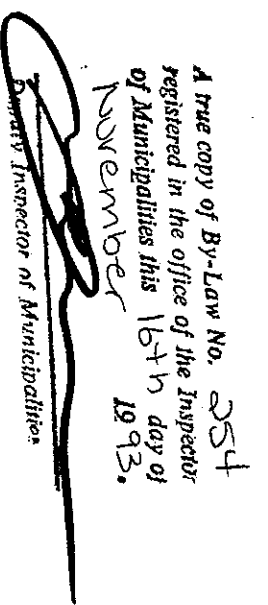 A true copy of By-Law No. 254
registered in the office of the Inspector
of Municipalities this 16th day of
November 1993.
Deputy Inspector of Municipalities